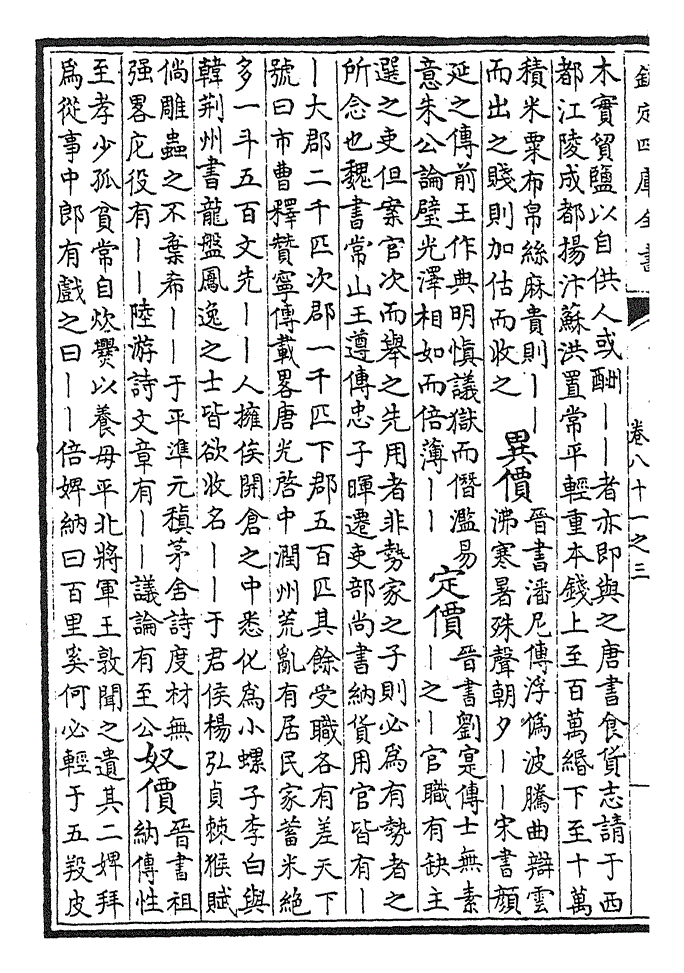 欽定四庫全書 卷八十一之三
木實貿鹽以自供人或酬丨丨者亦即與之唐書食貨志請于西
都江陵成都揚汴蘇洪置常平輕重本錢上至百萬緡下至十萬
積米粟布帛絲麻貴則丨丨
而出之賤則加估而收之
異價
晉書潘尼傳浮僞波騰曲辯雲
沸寒暑殊聲朝夕丨丨宋書顔
延之傳前王作典明愼議獄而僭濫易
意朱公論璧光澤相如而倍薄丨丨
定價
晉書劉寔傳士無素
丨之丨官職有缺主
選之吏但案官次而舉之先用者非勢家之子則必爲有勢者之
所念也魏書常山王遵傳忠子暉遷吏部尚書納貨用官皆有丨
丨大郡二千匹次郡一千匹下郡五百匹其餘受職各有差天下
號曰市曹釋贊寧傳載畧唐光啓中潤州荒亂有居民家蓄米絶
多一斗五百文先丨丨人擁俟開倉之中悉化爲小螺子李白與
韓荆州書龍盤鳳逸之士皆欲收名丨丨于君侯楊弘貞棘猴賦
倘雕蟲之不棄希丨丨于平準元稹茅舍詩度材無
强畧庀役有丨丨陸游詩文章有丨丨議論有至公
奴價
晉書祖
納傳性
至孝少孤貧常自炊爨以養母平北將軍王敦聞之遺其二婢拜
爲從事中郎有戲之曰丨丨倍婢納曰百里奚何必輕于五羖皮